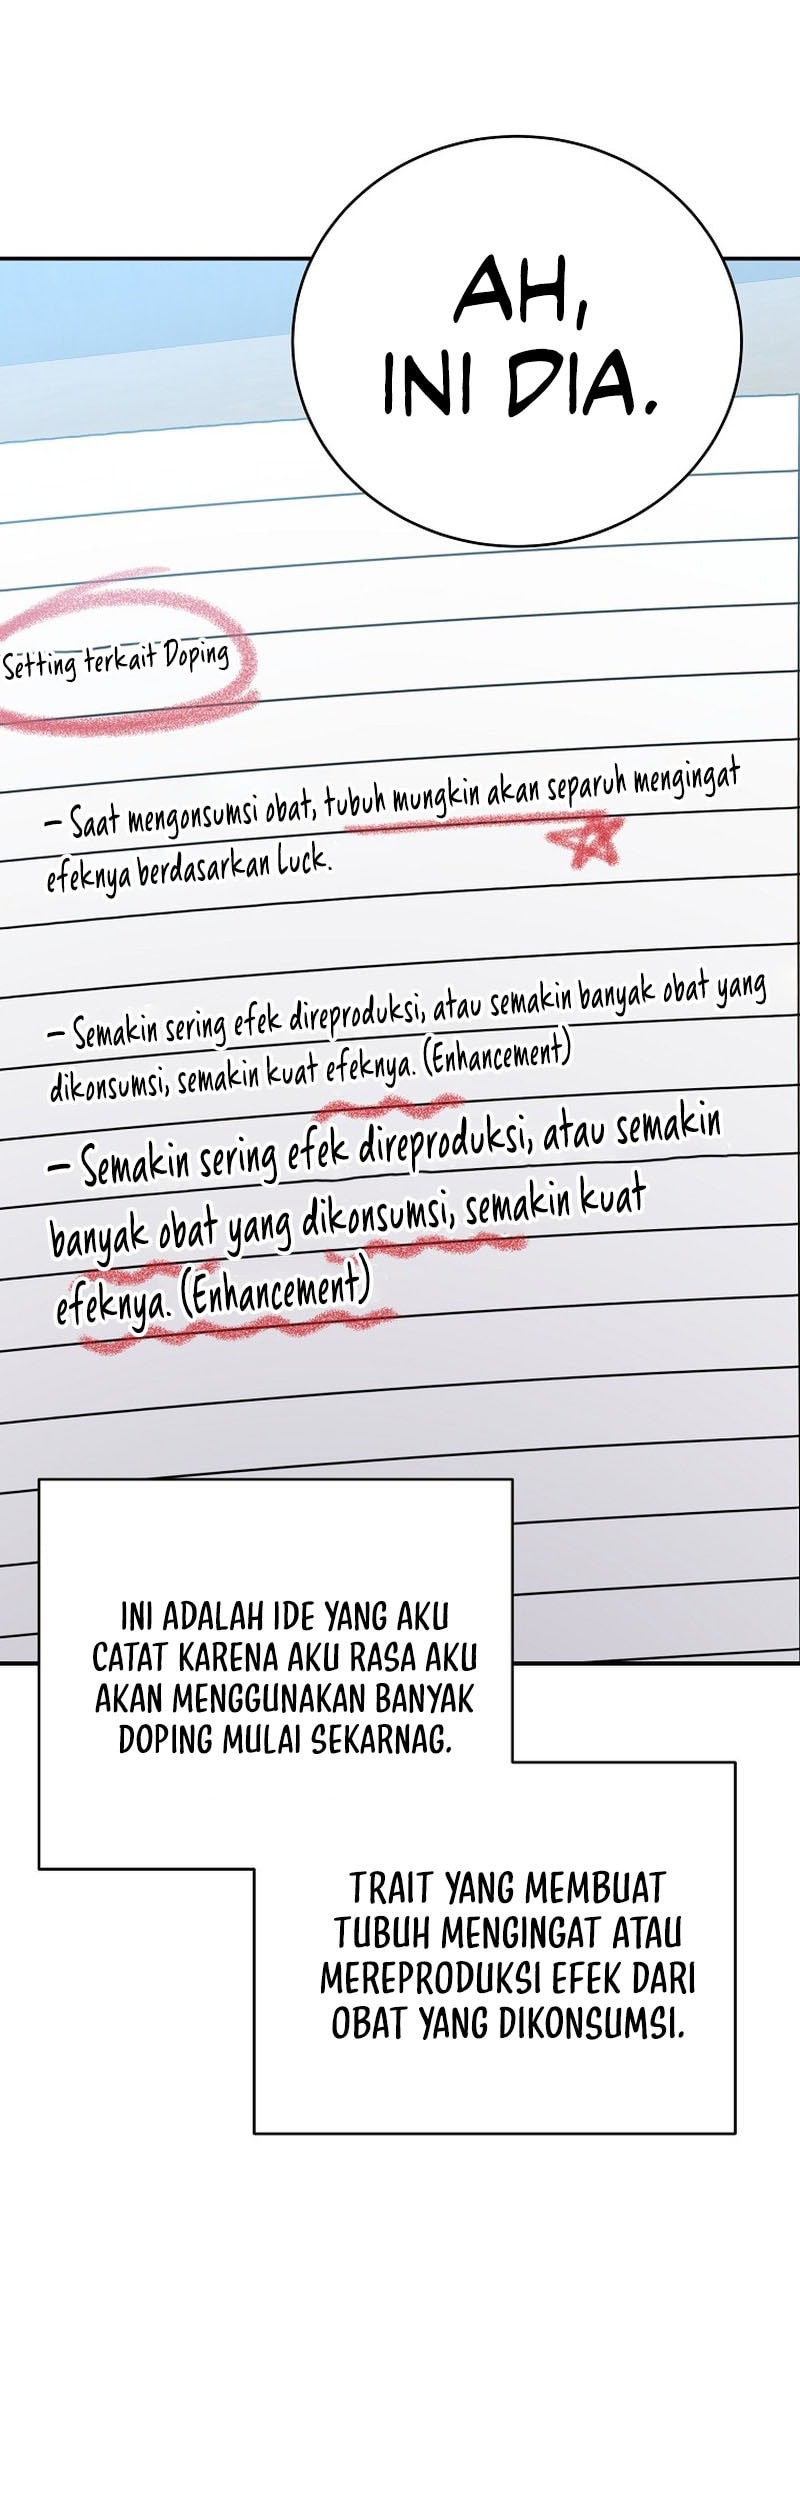 AH,
INI DIA.
Setting terkait Doping
– Saat mengonsumsi obat, tubuh mungkin akan separuh mengingat
efeknya berdasarkan Luck.
– Semakin sering efek direproduksi, atau semakin banyak obat yang
dikonsumsi, semakin kuat efeknya. (Enhancement)
– Semakin sering efek direproduksi, atau semakin
banyak obat yang dikonsumsi, semakin kuat
efeknya. (Enhancement)
INI ADALAH IDE YANG AKU
CATAT KARENA AKU RASA AKU
AKAN MENGGUNAKAN BANYAK
DOPING MULAI SEKARNAG.
TRAIT YANG MEMBUAT
TUBUH MENGINGAT ATAU
MEREPRODUKSI EFEK DARI
OBAT YANG DIKONSUMSI.